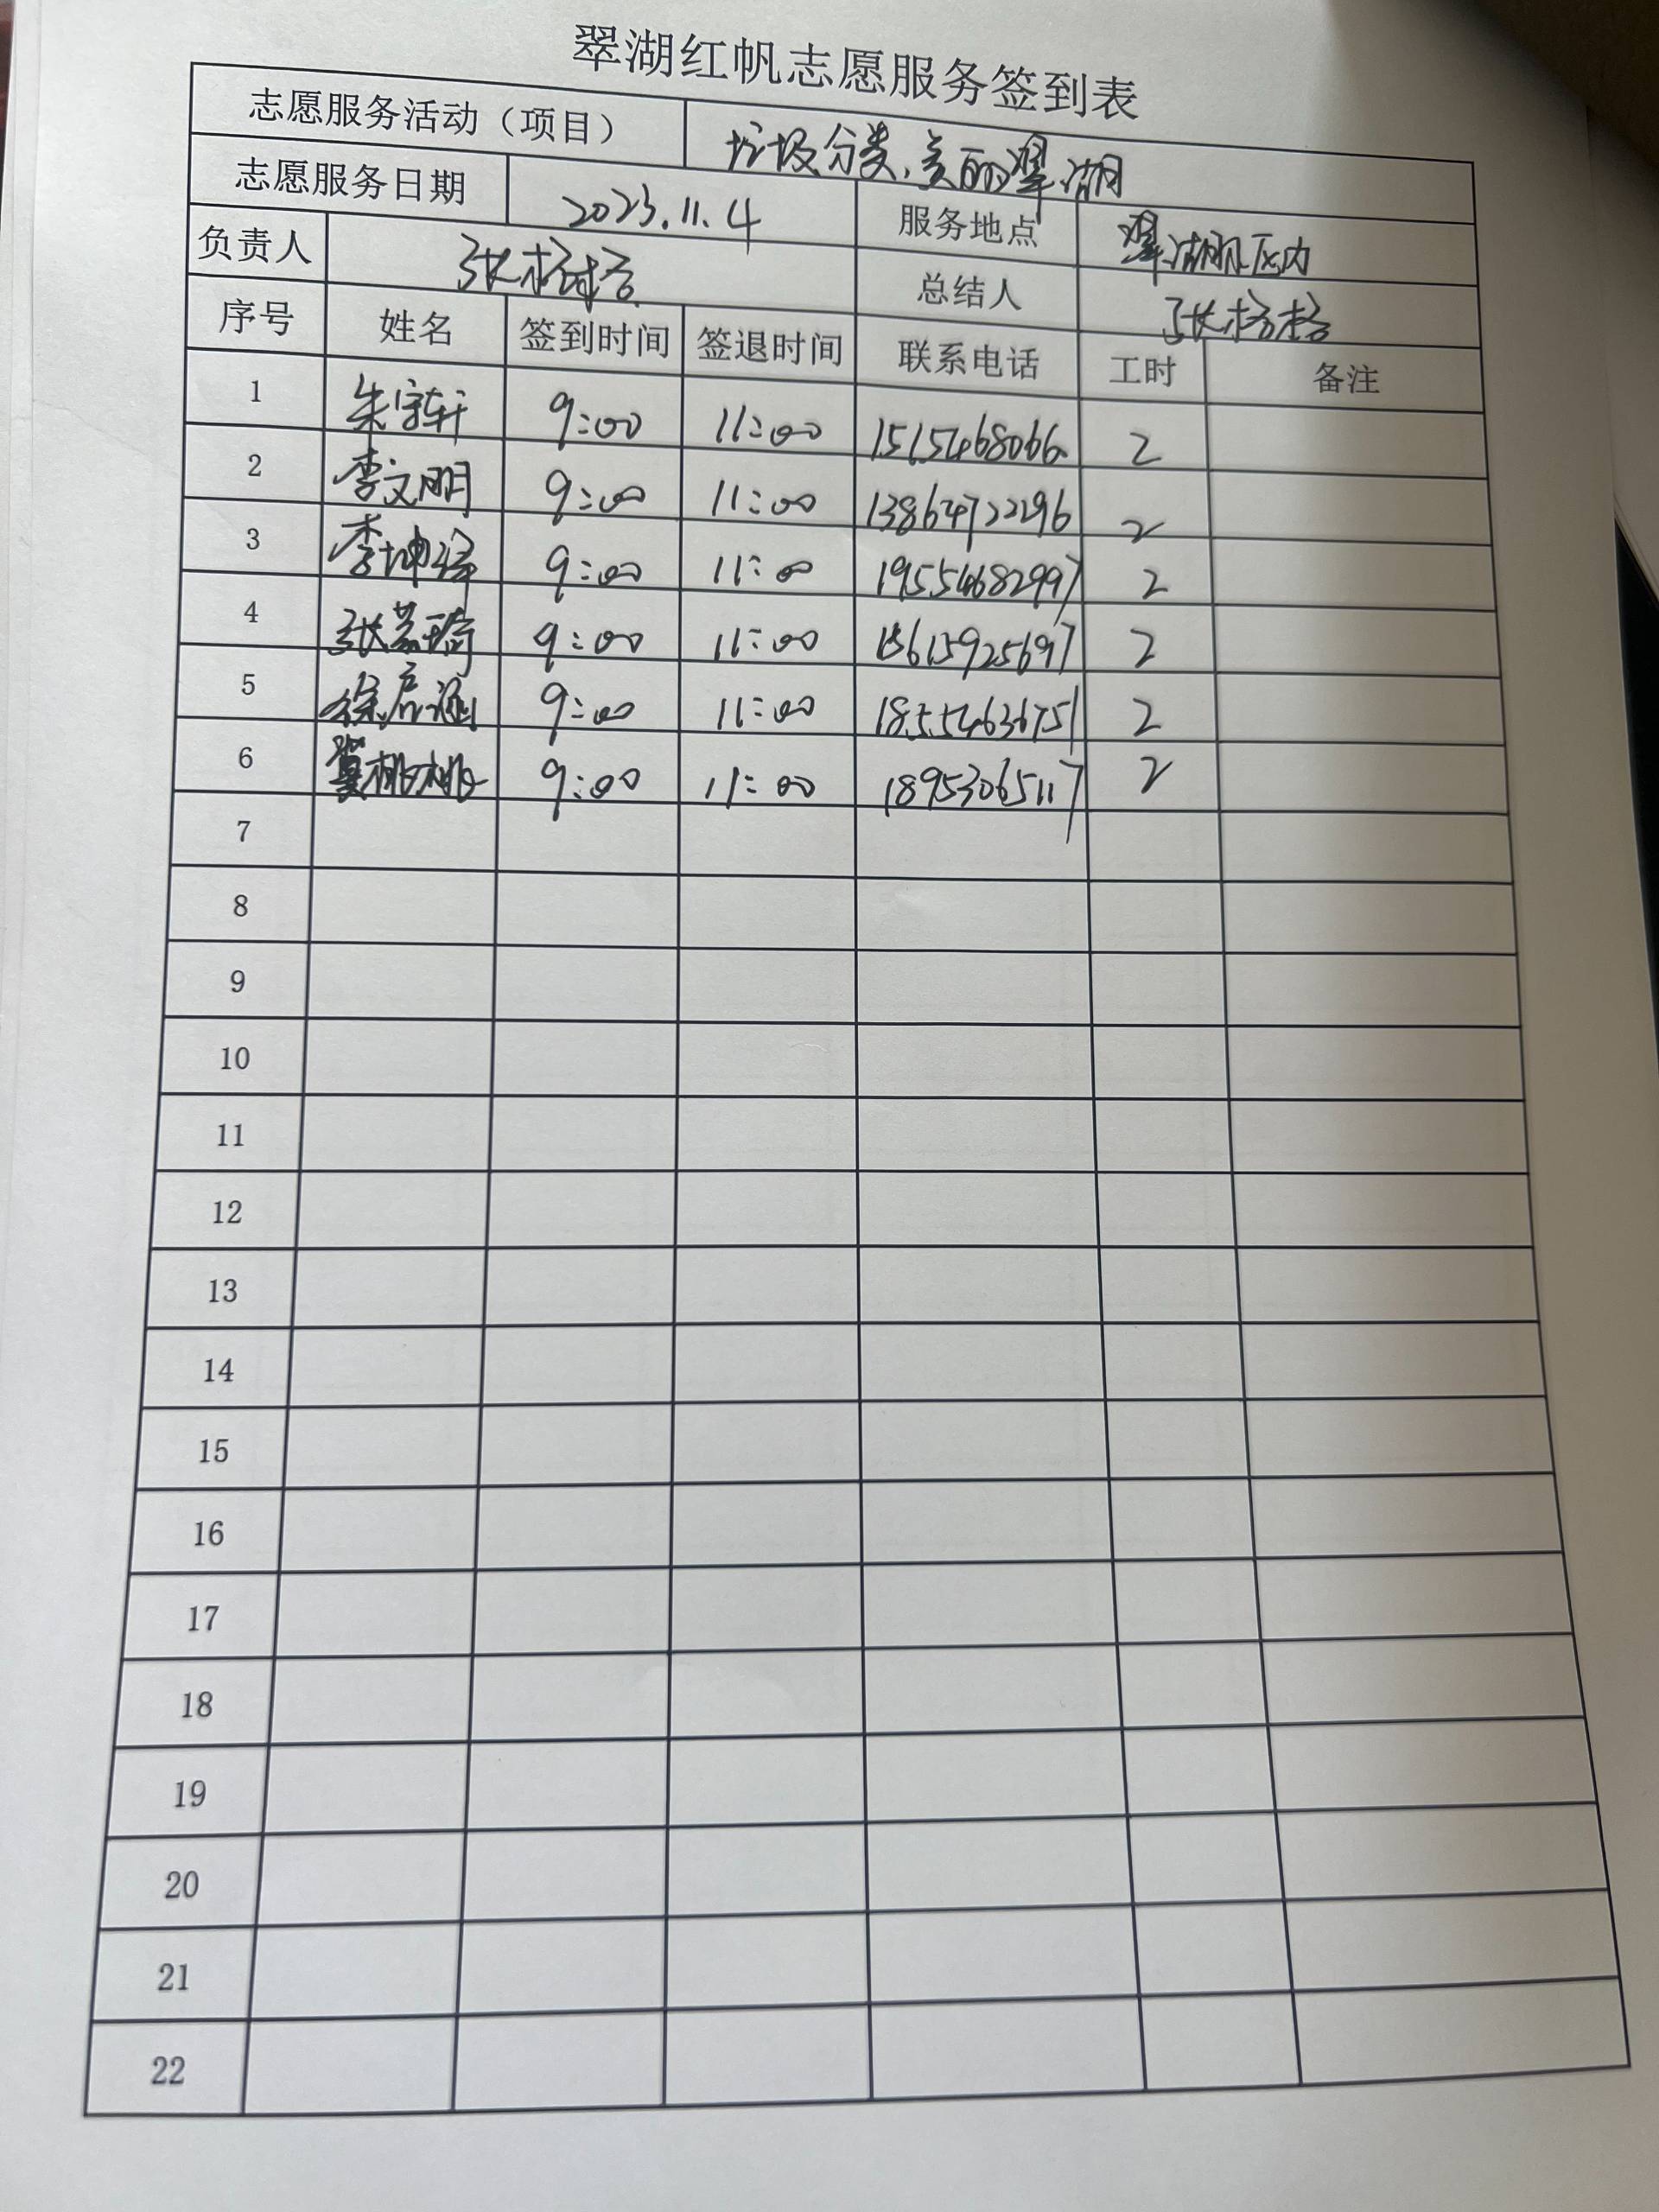 翠湖红帆志愿服务签到表
志愿服务活动（项目） 垃圾分类、美丽翠湖
志愿服务日期 2023.11.4 服务地点 翠湖辖区内
负责人 张格格 总结人 张格格
序号 姓名 签到时间 签退时间 联系电话 工时 备注
1 朱宇轩 9:00 11:00 2
2 李文明 9:00 11:00 13864722296 2
3 李坤 9:00 11:00 19554682997 2
4 9:00 11:00 15615925697 2
5 徐启涵 9:00 11:00 18554636751 2
6 冀桃桃 9:00 11:00 18953065117 2
7
8
9
10
11
12
13
14
15
16
17
18
19
20
21
22